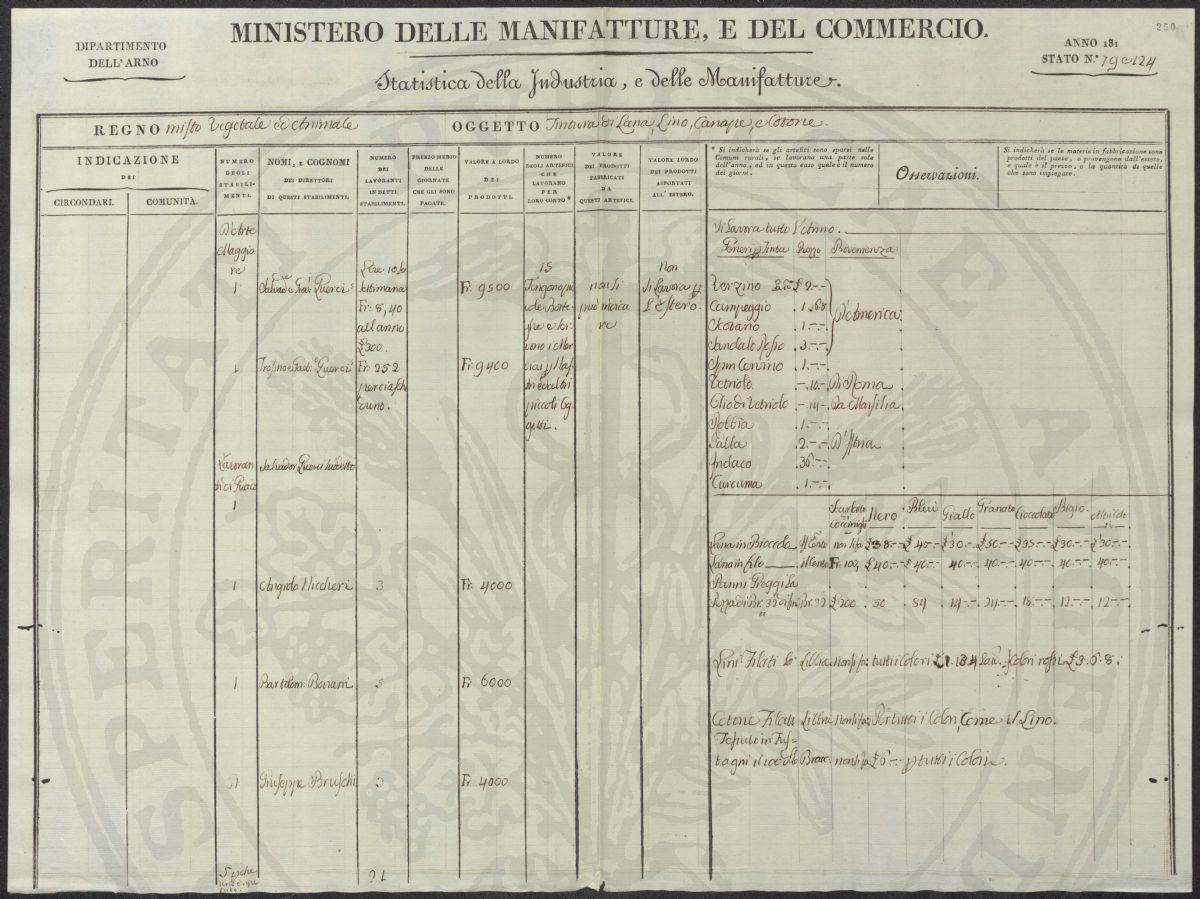 250
MINISTERO DELLE MANIFATTURE, E DEL COMMERCIO.
DIPARTIMENTO
DELL'ARNO
ANNO 181
STATO N.° 79 e 124
Statistica della Industria, e delle Manifatture.
REGNO misto Vegetale ed Animale
OGGETTO Tintura di Lana, Lino, Canape, e Cotone.
INDICAZIONE
DEI
CIRCONDARI.
COMUNITÀ.
NUMERO
DEGLI
STABILI-
MENTI.
NOMI, E COGNOMI
DEI DIRETTORI
DI QUESTI STABILIMENTI.
NUMERO
DEI
LAVORANTI
IN DETTI
STABILIMENTI.
PREZZO MEDIO
DELLE
GIORNATE
CHE GLI SONO
PAGATE.
VALORE A LORDO
DEI
PRODOTTI.
NUMERO
DEGLI ARTEFICI
CHE
LAVORANO
PER
LORO CONTO *
VALORE
DEI PRODOTTI
FABBRICATI
DA
QUESTI ARTEFICI.
VALORE LORDO
DEI PRODOTTI
ASPORTATI
ALL'ESTERO.
* Si indicherà se gli artefici sono sparsi nelle
Comuni rurali, se lavorano una parte sola
dell'anno, ed in questo caso quale è il numero
dei giorni.
Osservazioni.
Si indicherà se le materie in fabbricazione sono
prodotti del paese, o provengono dall'estero,
e quale è il prezzo, o la quantità di quelle
che sono impiegate.
D'Arte
Maggio
re
1
Quercis
Lire 10
settimana
Fr: 8, 40
all anno
£ 300.
Fr: 9500
15
Tengono
non si
può
re
Non
si Lavora p
l'Estero.
1
Quercis
Fr: 252
Fr: 9400
piccoli Og
getti.
Lavoran
ti di Guado
1
Salvador Querci sudetto
1
Angiolo
3
Fr: 4000
1
Bartolom:
5
Fr: 6000
Giuseppe Bruschi
3
Fr: 4000
21
Si Lavora tutto l'Anno.
Generi p Tinta Prezzo Provenienza
Verzino £ 2.--
Campeggio 1. 6.8
Scotano 1.--
Sandalo Rosso 3.--
D'America
1.--
Vetriolo -.10.- Di Roma
Olio di Vetriolo -.14.- Da Marsilia
Robbia 1.--
Galla 2.-- D'Istria
Indaco 36.--
Curcuma 1.--
Nero Bleù Giallo Granato Cioccolato Bigio
Lana in Bioccolo il Cento non si fa £38.-- £40.-- £30.-- £50.-- £35.-- £30.-- £30.--
Lana in filo il Cento Fr: 100, £40.-- 40.-- 40.-- 40.-- 40.-- 40.-- 40.--
Panni Greggi La
Pezza di Br: 32 £200 50 84 14.-- 24.-- 18.-- 12.-- 12.--
Lini Filati la Libbra non si fa: tutti i Colori Colori rossi £3.6.8.
Cotone Filati Libbra non si fa: Per tutti i Colori, Come il Lino.
Tessuto in Fus=
tagni Bracc: non si fa £6.-- p tutti i Colori.